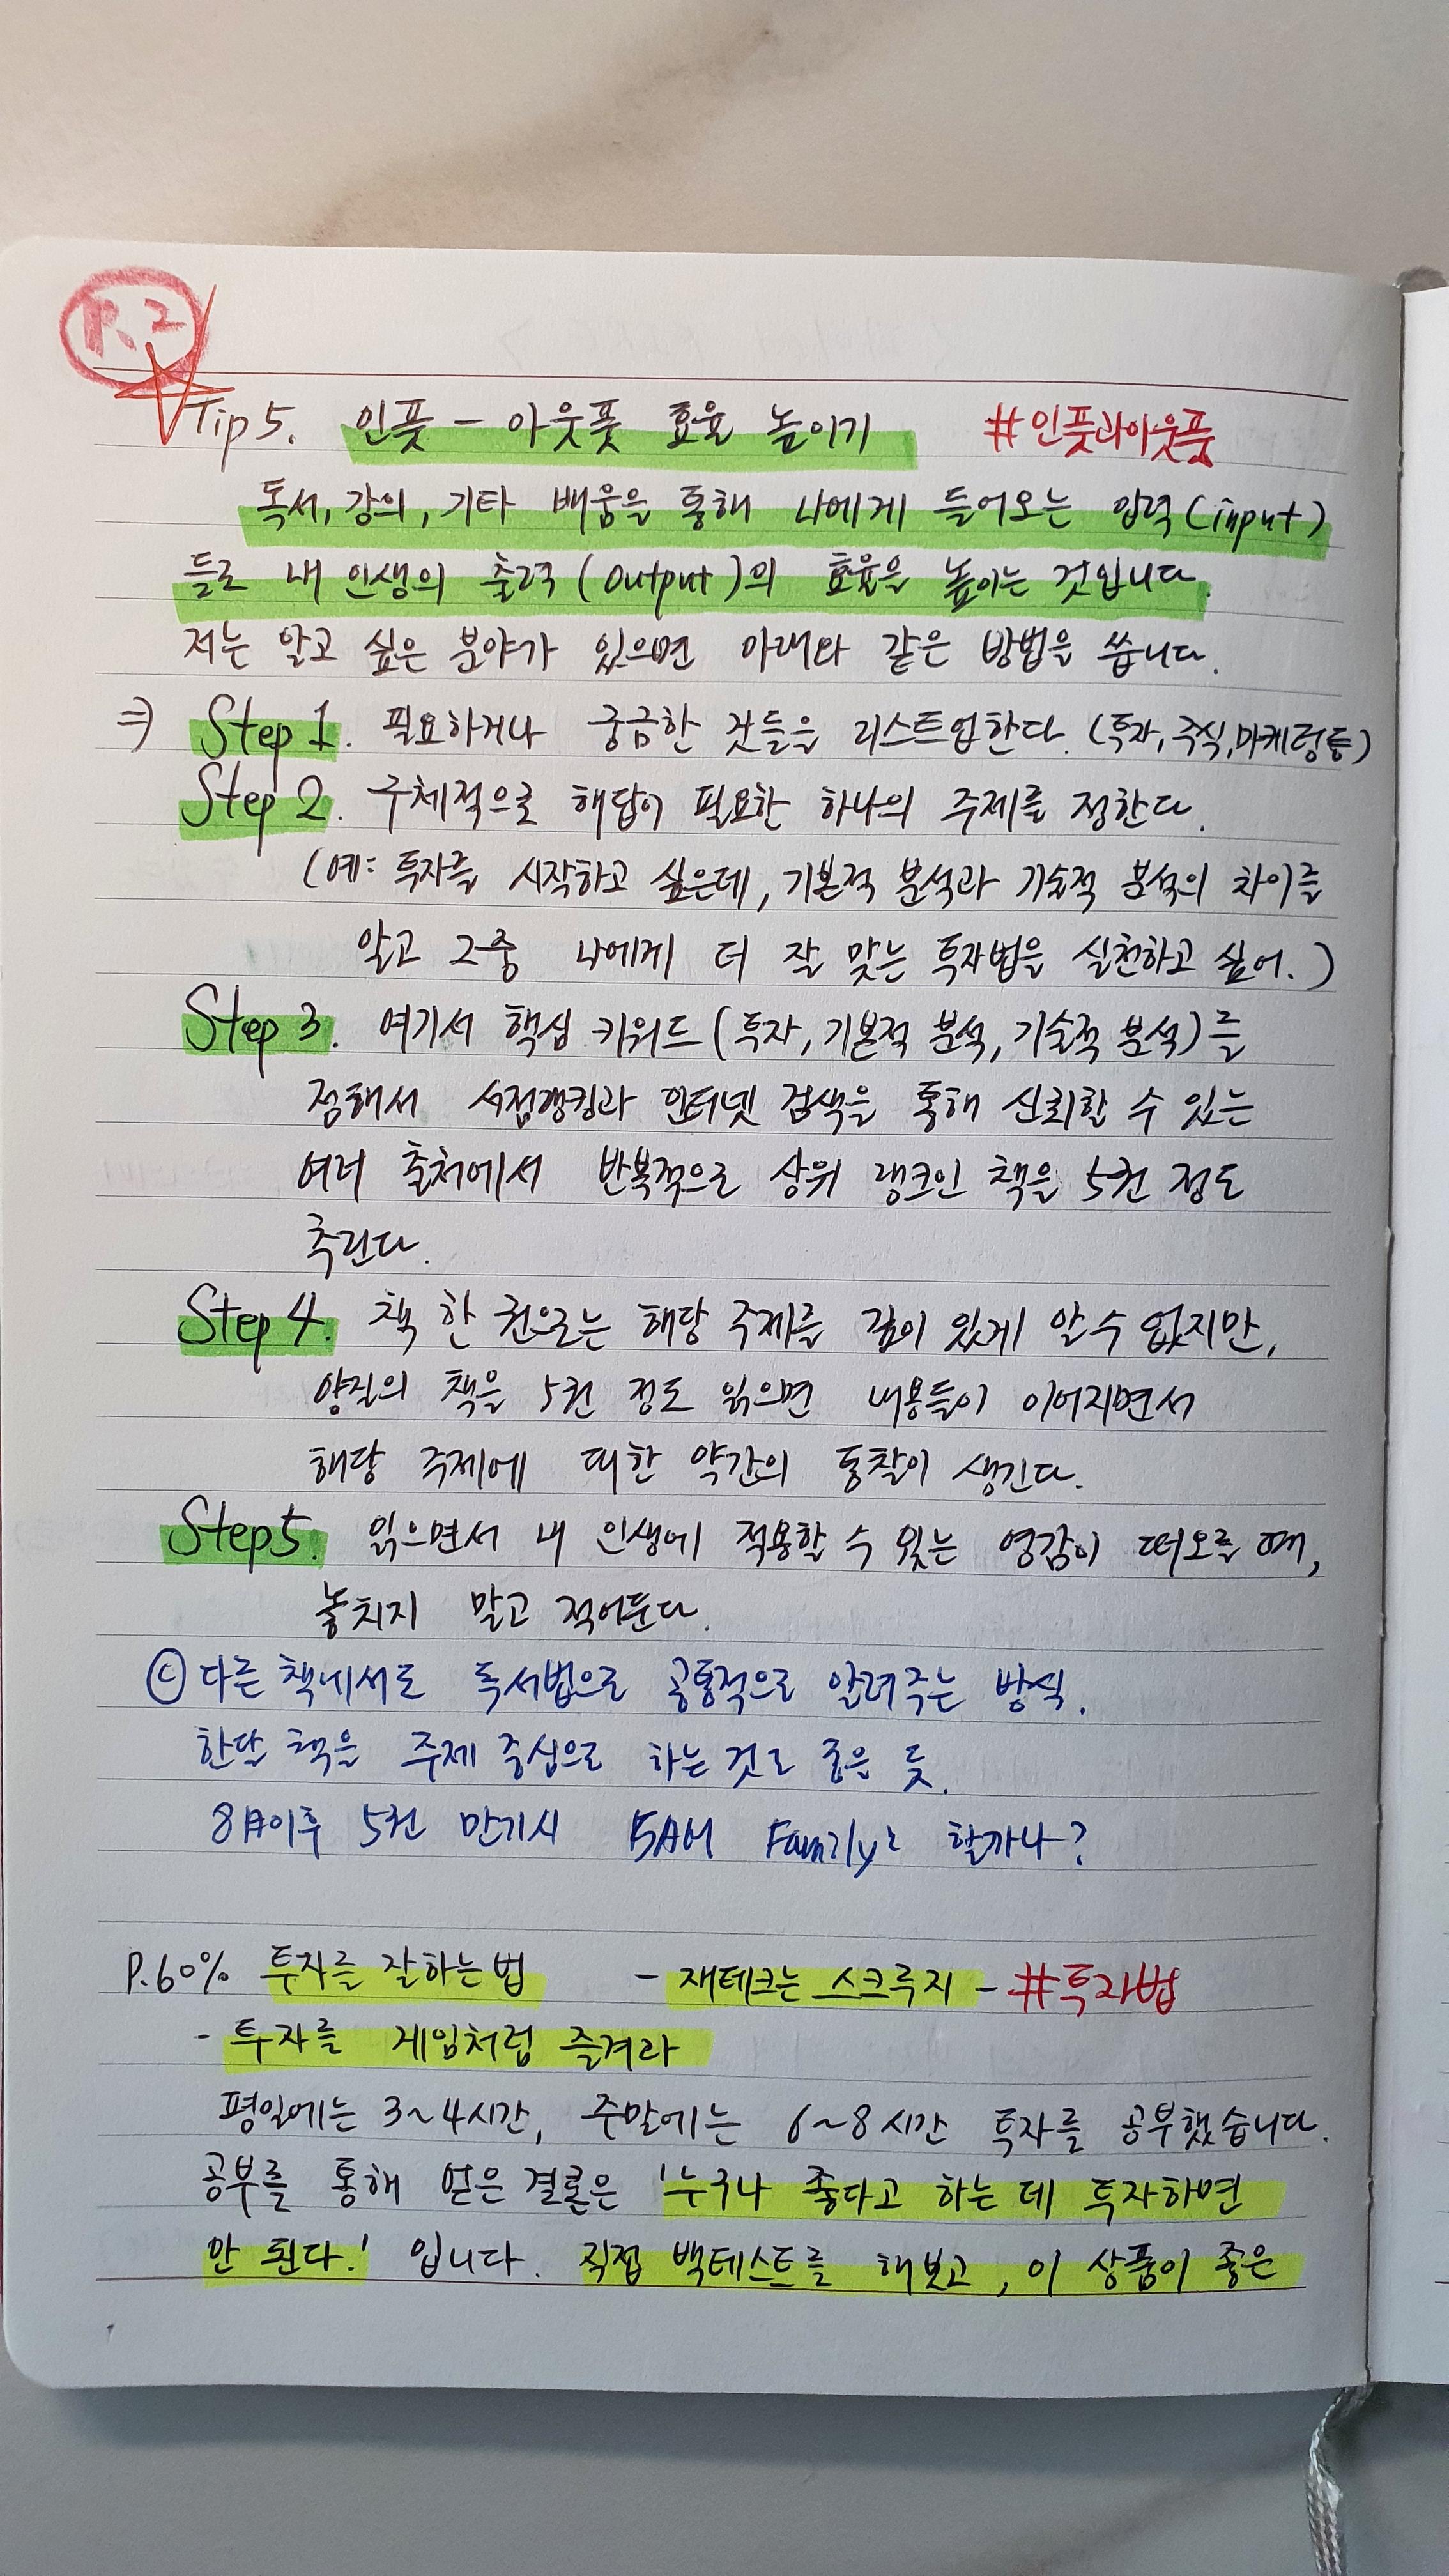 P.2
Tip 5. 인풋 - 아웃풋 효율 높이기 #인풋과아웃풋
독서, 강의, 기타 배움을 통해 나에게 들어오는 입력(input)
들로 내 인생의 출력(output)의 효율을 높이는 것입니다.
저는 알고 싶은 분야가 있으면 아래와 같은 방법을 씁니다.
⇒ Step 1. 필요하거나 궁금한 것들을 리스트업한다. (투자, 주식, 마케팅 등)
Step 2. 구체적으로 해답이 필요한 하나의 주제를 정한다.
(예: 투자를 시작하고 싶은데, 기본적 분석과 기술적 분석의 차이를
알고 그중 나에게 더 잘 맞는 투자법을 실천하고 싶어.)
Step 3. 여기서 핵심 키워드(투자, 기본적 분석, 기술적 분석)를
정해서 서점랭킹과 인터넷 검색을 통해 신뢰할 수 있는
여러 출처에서 반복적으로 상위 랭크인 책을 5권 정도
추린다.
Step 4. 책 한 권으로는 해당 주제를 깊이 있게 알 수 없지만,
양질의 책을 5권 정도 읽으면 내용들이 이어지면서
해당 주제에 대한 약간의 통찰이 생긴다.
Step 5. 읽으면서 내 인생에 적용할 수 있는 영감이 떠오를 때,
놓치지 말고 적어둔다.
ⓒ 다른 책에서도 독서법으로 공통적으로 알려주는 방식.
한달 책을 주제 중심으로 하는 것도 좋은 듯.
8월이후 5권 만기시 5AM Family로 할까나?
P.60% 투자를 잘하는 법 - 재테크는 스크루지 - #투자법
- 투자를 게임처럼 즐겨라
평일에는 3~4시간, 주말에는 6~8시간 투자를 공부했습니다.
공부를 통해 얻은 결론은 '누구나 좋다고 하는 데 투자하면
안 된다.' 입니다. 직접 백테스트를 해보고, 이 상품이 좋은